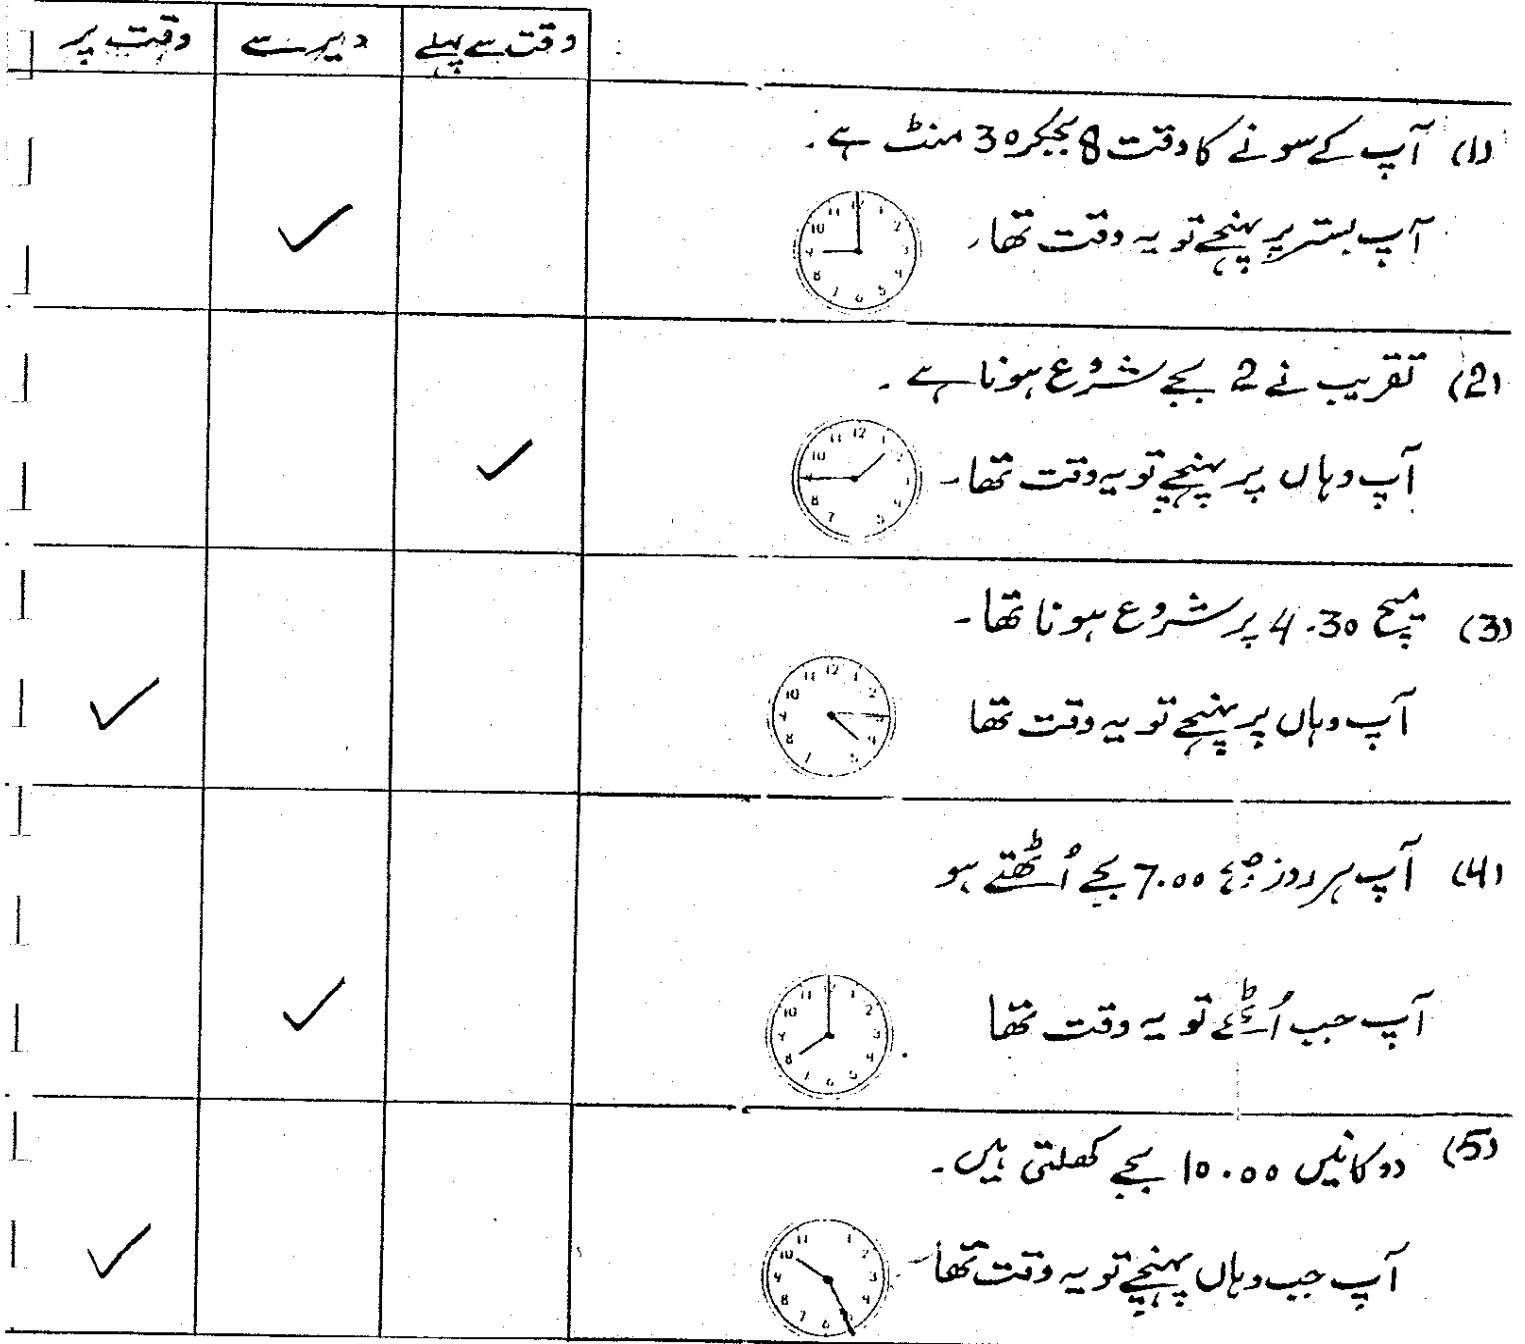 وقت سے پہلے دیر سے وقت پر
(1) آپ کے سونے کا وقت 8 بجکر 30 منٹ ہے۔
آپ بستر پر پہنچے تو یہ وقت تھا۔
(2) تقریب نے 2 بجے شروع ہونا ہے۔
آپ وہاں پر پہنچے تو یہ وقت تھا۔
(3) میچ 4.30 پر شروع ہونا تھا۔
آپ وہاں پر پہنچے تو یہ وقت تھا
(4) آپ ہر روز صبح 7.00 بجے اُٹھتے ہو
آپ جب اُٹھے تو یہ وقت تھا
(5) دوکانیں 10.00 بجے کھلتی ہیں۔
آپ جب وہاں پہنچے تو یہ وقت تھا۔